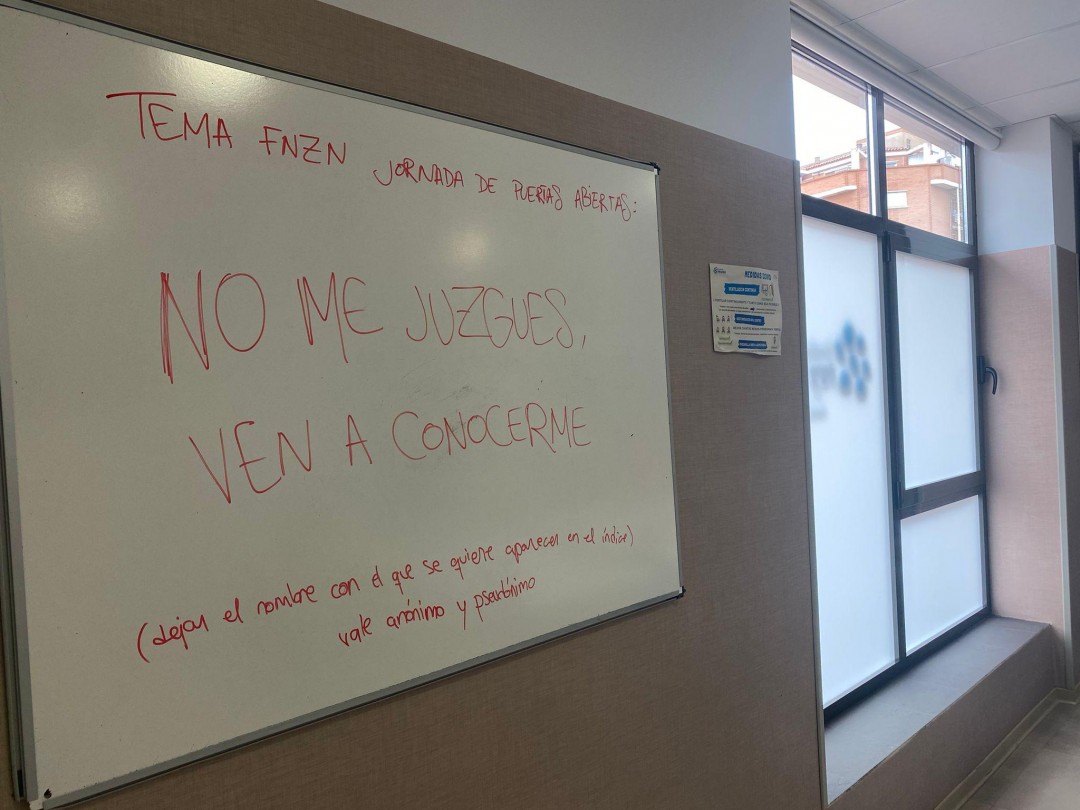 TEMA FNZN JORNADA DE PUERTAS ABIERTAS:
NO ME JUZGUES,
VEN A CONOCERME
(dejar el nombre con el que se quiere aparecer en el índice)
vale anónimo y pseudónimo
MEDIDAS